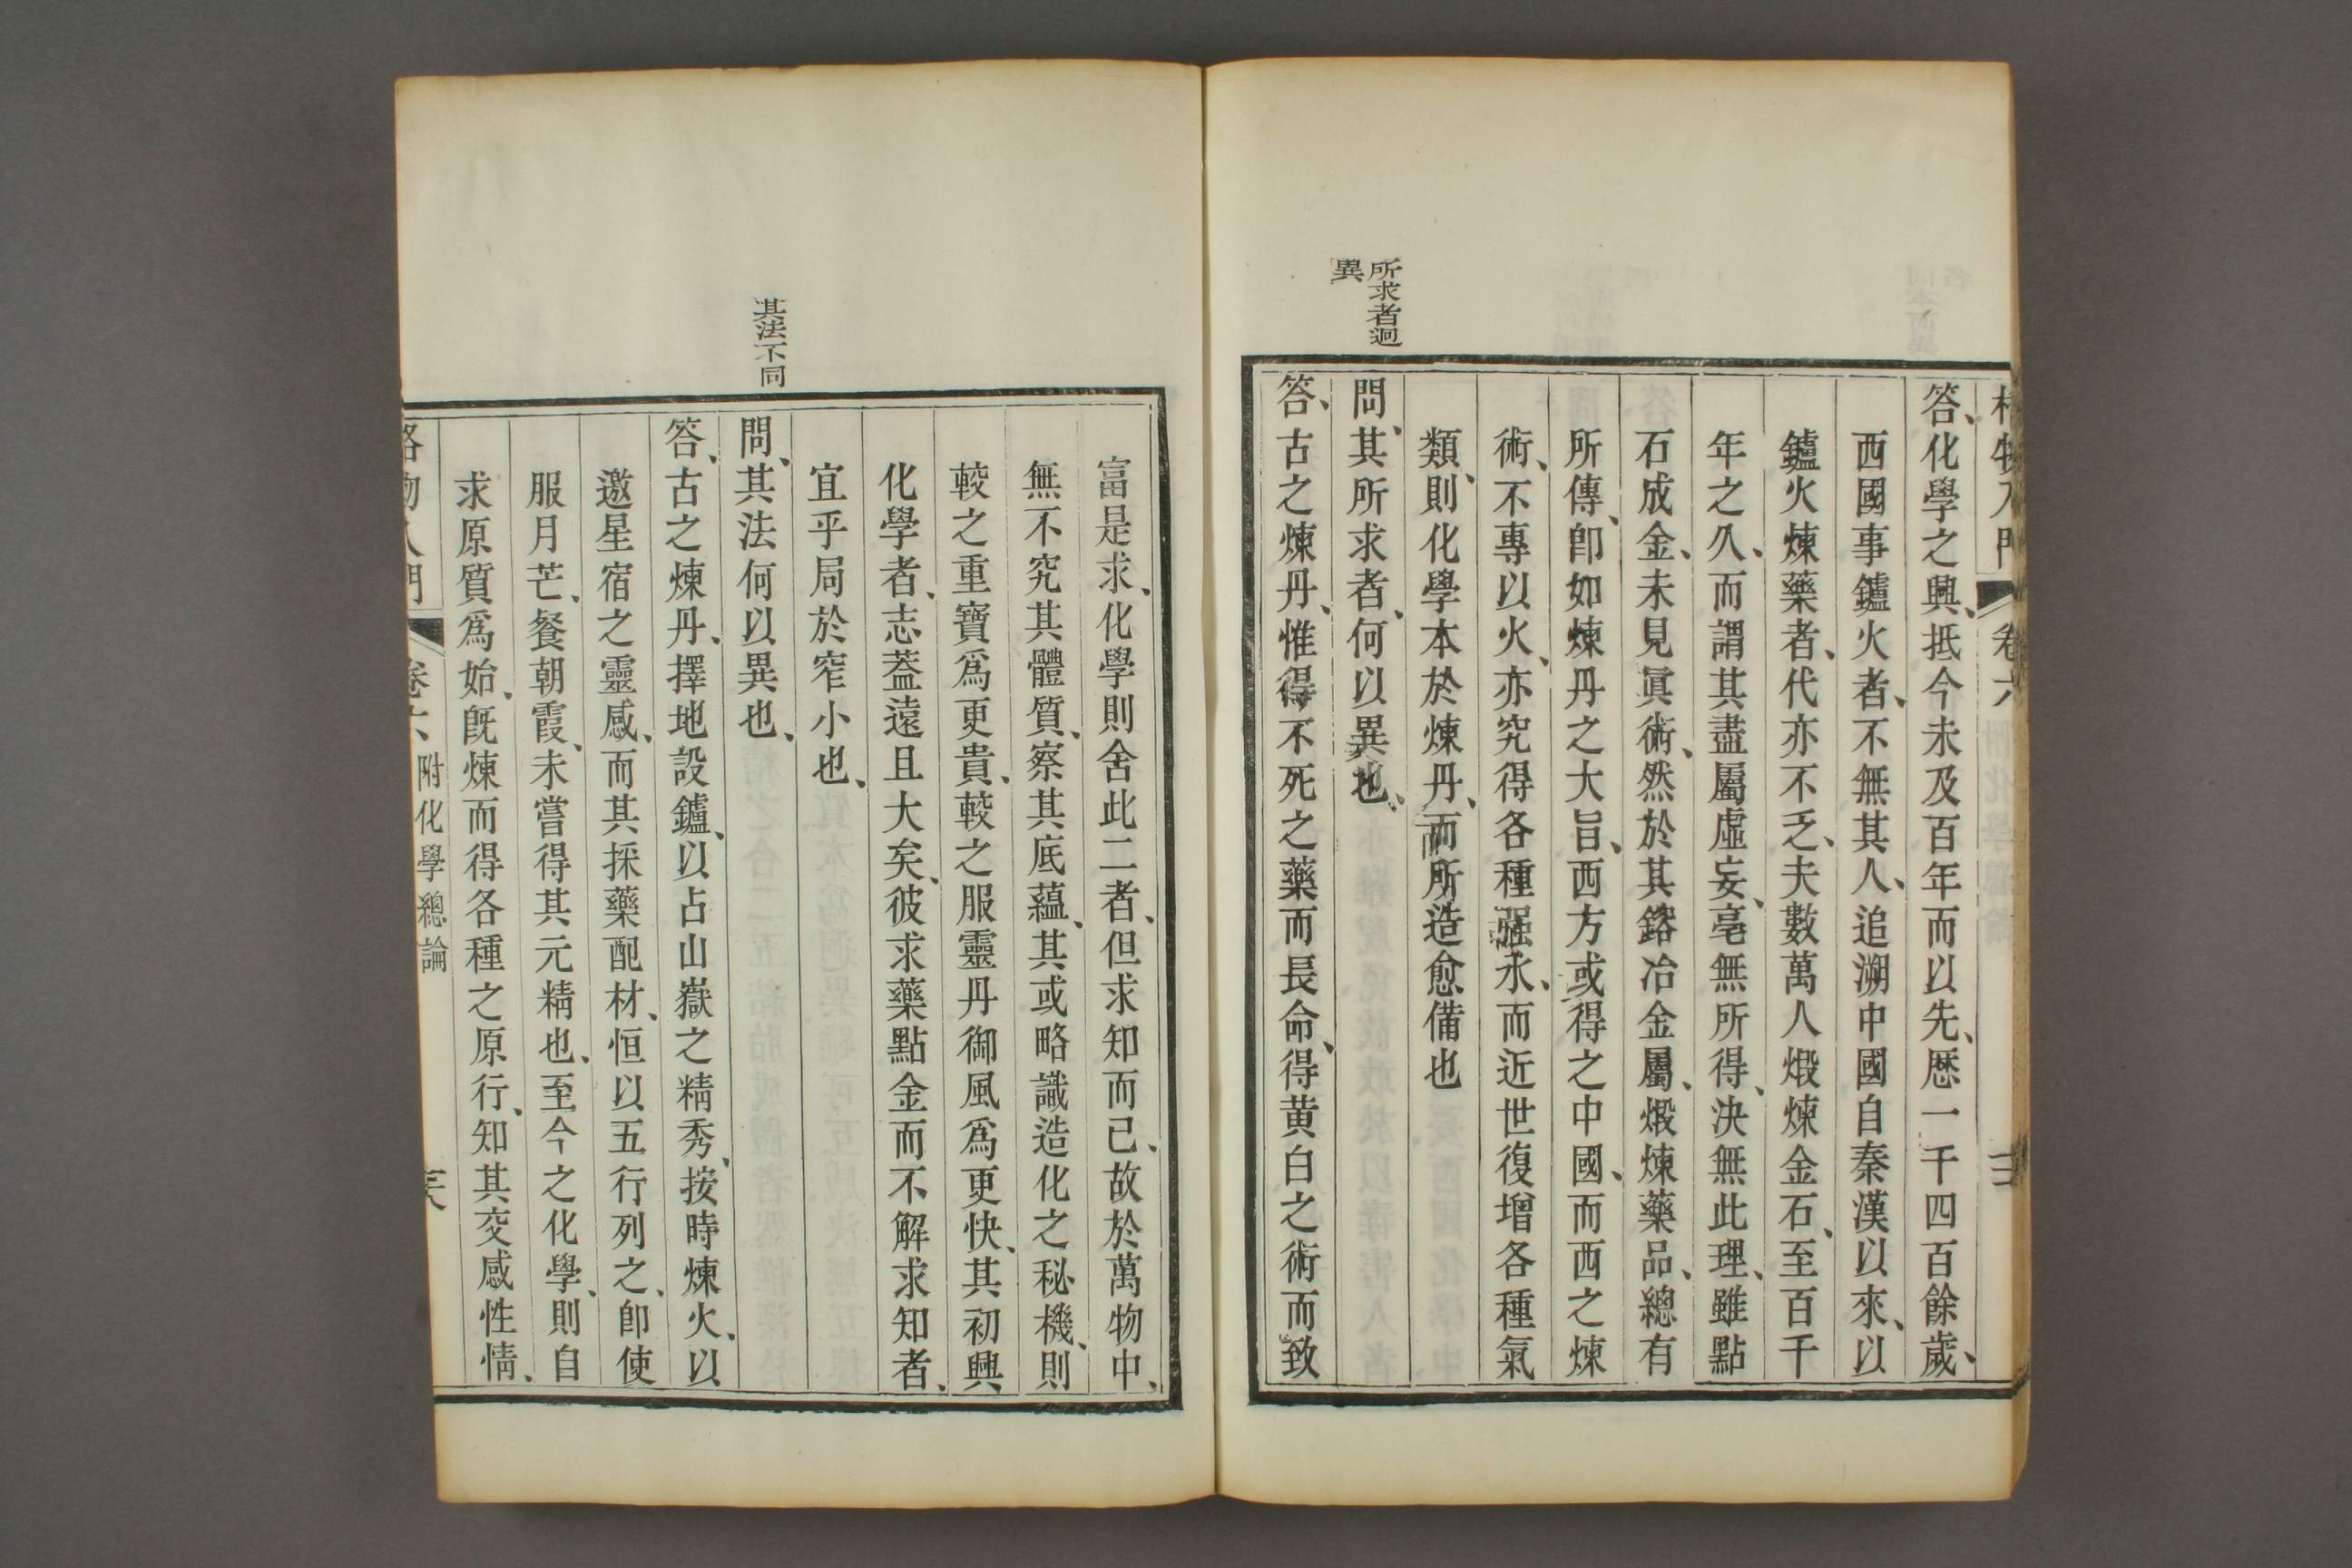 格物入門 卷六
答、化學之興、抵今未及百年而以先、歷一千四百餘歲、
西國事鑪火者、不無其人、追溯中國自秦漢以來、以
鑪火煉藥者、代亦不乏、夫數萬人煅煉金石、至百千
年之久、而謂其盡屬虛妄、毫無所得、決無此理、雖點
石成金、未見眞術、然於其鎔冶金屬、煅煉藥品、總有
所傳、卽如煉丹之大旨、西方或得之中國、而西之煉
術、不專以火、亦究得各種强水、而近世復增各種氣
類、則化學本於煉丹、而所造愈備也
所求者迥
異
問、其所求者、何以異也、
答、古之煉丹、惟得不死之藥而長命、得黃白之術而致
富是求、化學則舍此二者、但求知而已、故於萬物中、
無不究其體質、察其底蘊、其或略識造化之秘機、則
較之重寶爲更貴、較之服靈丹御風爲更快、其初興
化學者、志葢遠且大矣、彼求藥點金而不解求知者、
宜乎局於窄小也、
其法不同
問、其法何以異也、
答、古之煉丹、擇地設鑪、以占山嶽之精秀、按時煉火、以
邀星宿之靈感、而其採藥配材、恒以五行列之、卽使
服月芒、餐朝霞、未嘗得其元精也、至今之化學、則自
求原質爲始、旣煉而得各種之原行、知其交感性情、
格物入門 卷六 附化學總論